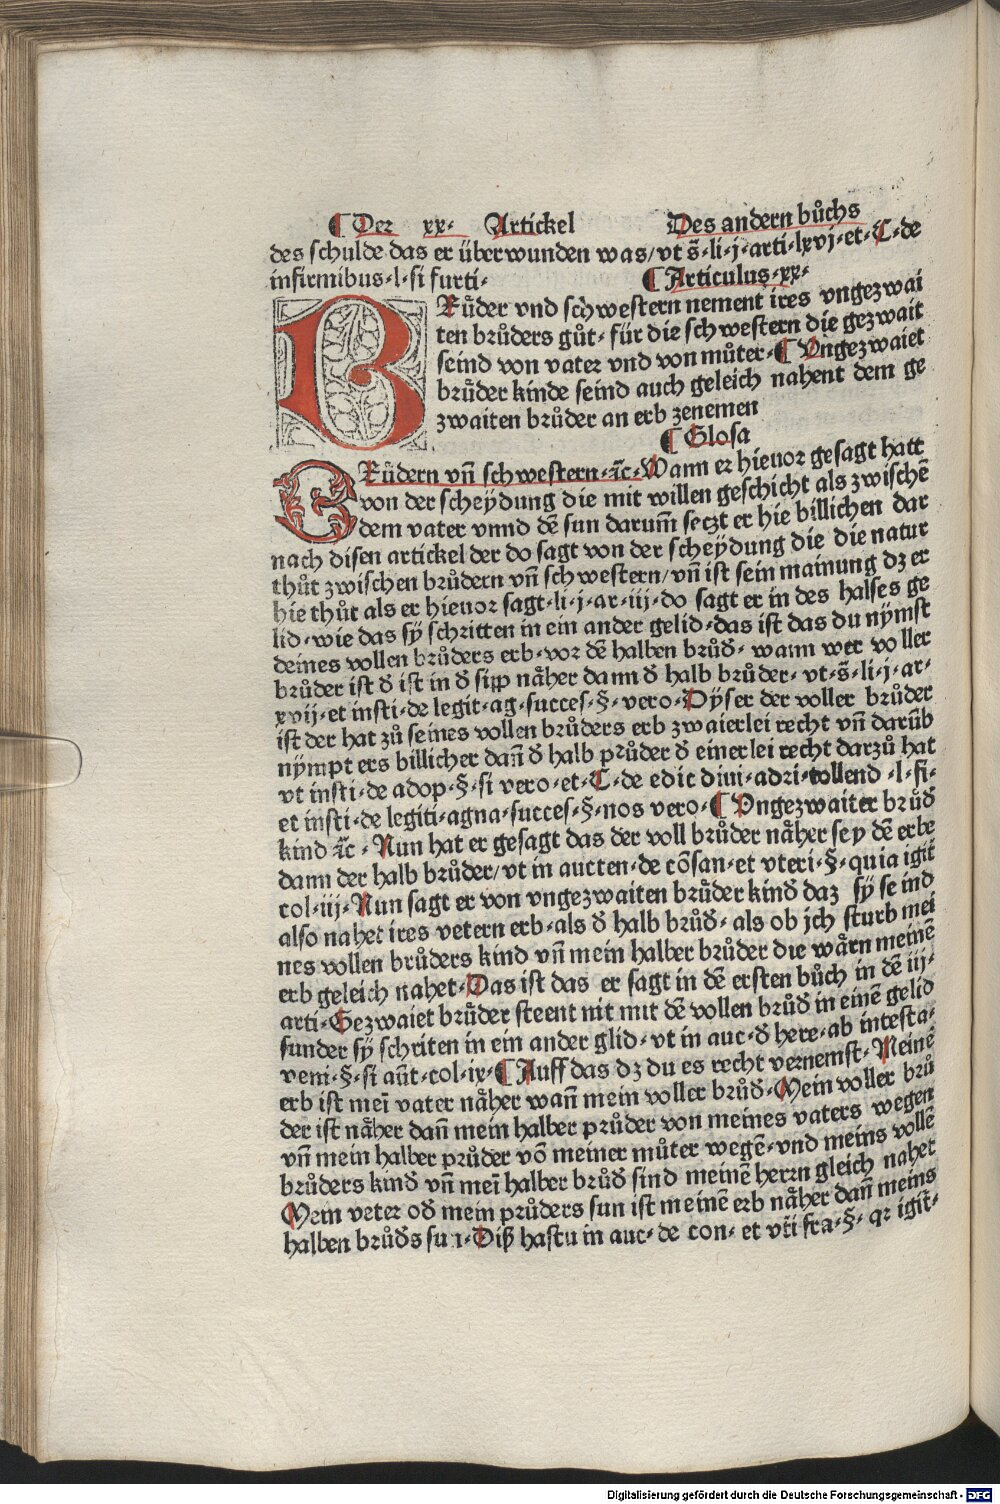 ¶ Der xx· Artickel Des andern bůchs
des schulde das er überwunden was/ vt s̄·li·j·arti·lxvj·et·C·de
infirmibus·l·si furti· ¶ Articulus·xx·
BRu̎der vnd schwestern nement ires vngezwai
ten brůders gůt· für die schwestern die gezwait
seind von vater vnd von můter·¶ Vngezwaiet
bru̎der kinde seind auch geleich nahent dem ge
zwaiten brůder an erb zenemen
¶ Glosa
BRu̎dern vn̄ schwestern·⁊c̄·Wann er hieuor gesagt hatt
von der scheÿdung die mit willen geschicht als zwischē
dem vater vnnd dē sun darum̄ seczt er hie billichen dar
nach disen artickel der do sagt von der scheÿdung die die natur
thůt zwischen bru̎dern vn̄ schwestern/ vn̄ ist sein mainung dz er
hie thůt als er hieuor sagt·li·j·ar·iij·do sagt er in des halses ge
lid·wie das sÿ schritten in ein ander gelid·das ist das du nÿmst
deines vollen brůders erb·vor dē halben brůd̄· wann wer voller
brůder ist d̄ ist in d̄ sipp nåher dann d̄ halb brůder·vt·s̄·li·j·ar·
xvij·et insti·de legit·ag·succes·§·vero·Dÿser der voller brůder
ist der hat zů seines vollen brůders erb zwaierlei recht vn̄ darūb
nÿmpt ers billicher dan̄ d̄ halb průder d̄ einerlei recht darzů hat
vt insti·de adop·§·si vero·et·C·de edic diui·adri·tollend·l·fi·
et insti·de legiti·agna·succes·§·nos vero·¶ Vngezwaiter brůd̄
kind ⁊c̄·Nun hat er gesagt das der voll brůder nåher sey dē erbe
dann der halb brůder/ vt in aucten·de cōsan·et vteri·§·quia igit̄
col·iij·Nun sagt er von vngezwaiten bru̎der kind̄ daz sÿ seind
also nahet ires vetern erb·als d̄ halb brůd̄·als ob jch sturb mei
nes vollen brůders kind vn̄ mein halber brůder die wårn meinē
erb geleich nahet·Das ist das er sagt in dē ersten bůch in dē iij·
arti·Gezwaiet bru̎der steent nit mit dē vollen brůd̄ in einē gelid
sunder sÿ schriten in ein ander glid·vt in auc·d̄ here·ab intesta·
veni·§·si aūt·col·ix·¶ Auff das dz du es recht vernemst·Meinē
erb ist meī vater nåher wan̄ mein voller brůd̄·Mein voller brů
der ist nåher dan̄ mein halber průder von meines vaters wegen
vn̄ mein halber průder vō meiner můter wegē·vnd meins vollē
brůders kind̄ vn̄ meī halber brůd̄ sind meinē herrn gleich nahet
Mein veter od̄ mein průders sun ist meinē erb nåher dan̄ meins
halben brůd̄s sun·Diß hastu in auc·de con·et vt̄i fra·§·qr igit̄·
Digitalisierung gefördert durch die Deutsche Forschungsgemeinschaft - DFG